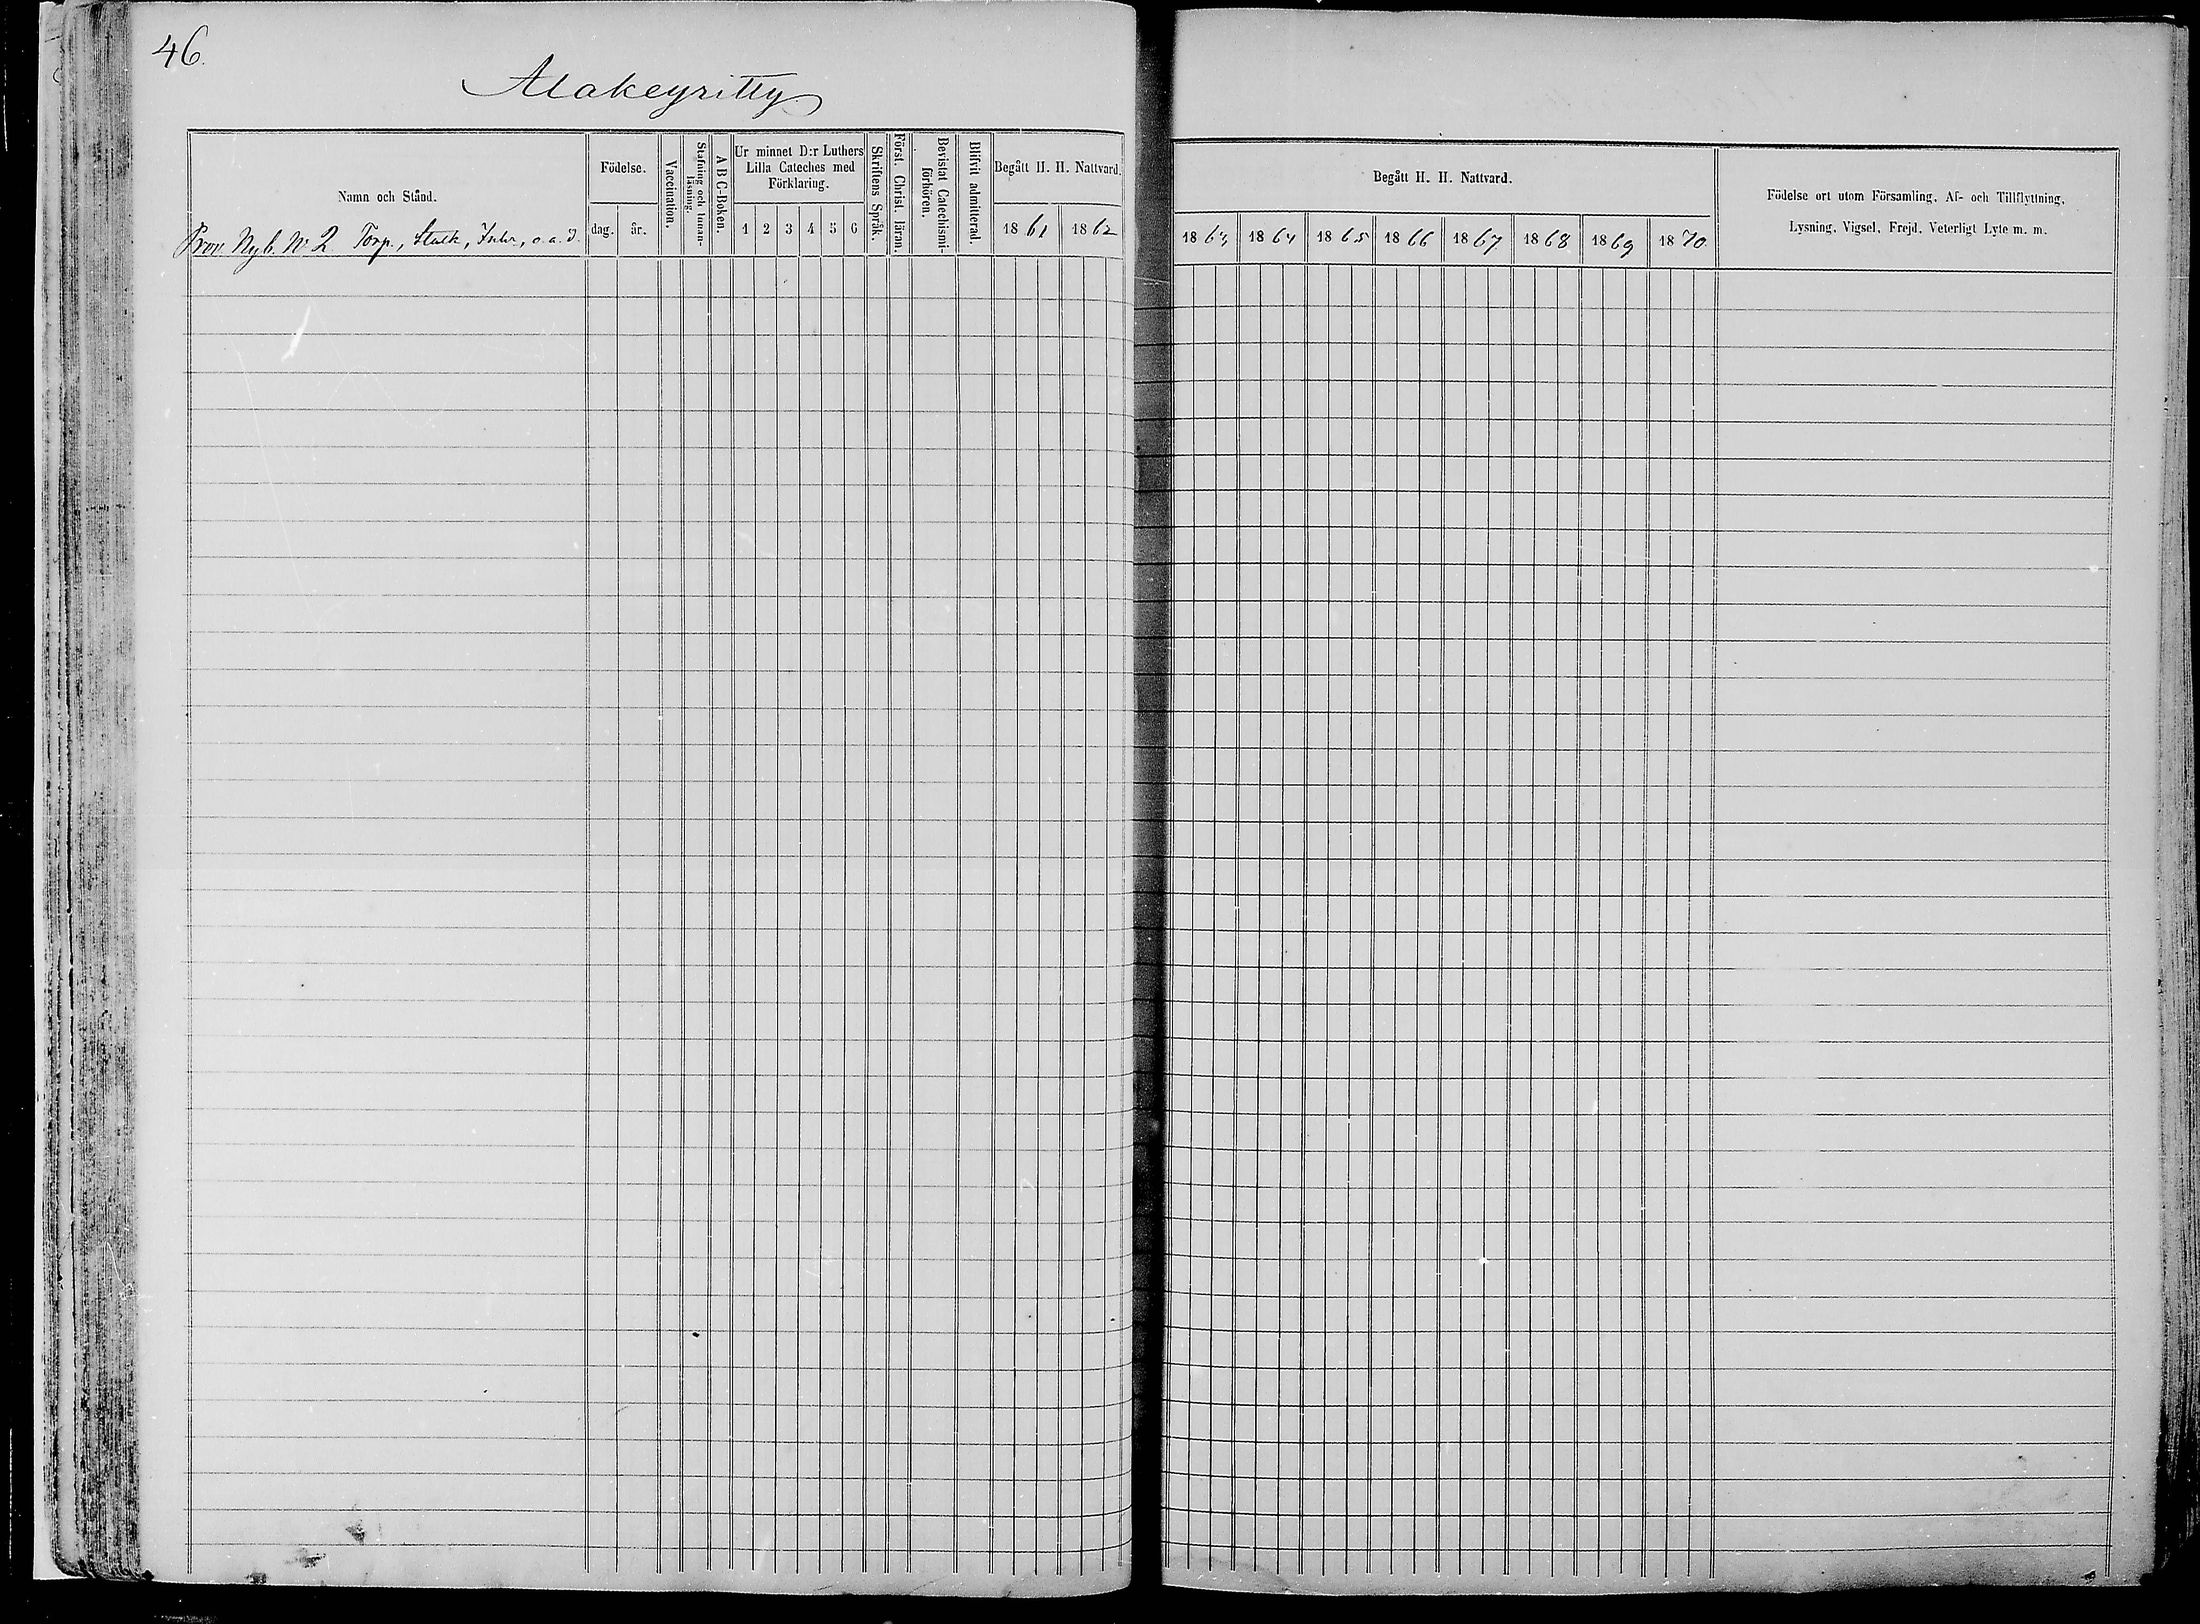 46.
Alakeyritty
Namn och Stånd.
Födelse.
dag.
år.
Vaccination.
Stafning och Innan-
läsning.
A B C-Boken.
Ur minnet D:r Luthers
Lilla Cateches med
Förklaring.
1 2 3 4 5 6
Skriftens Språk.
Först. Christ. läran.
Bevistat Catechismi-
förhören.
Blifvit admitterad.
Begått H. H. Nattvard.
1861 1862
Nyb. No 2 Torp., Statk, Inhr, o. a. d.
Begått H. H. Nattvard.
1863 1864 1865 1866 1867 1868 1869 1870
Födelse ort utom Församling, Af- och Tillflyttning,
Lysning, Vigsel, Frejd, Veterligt Lyte m. m.